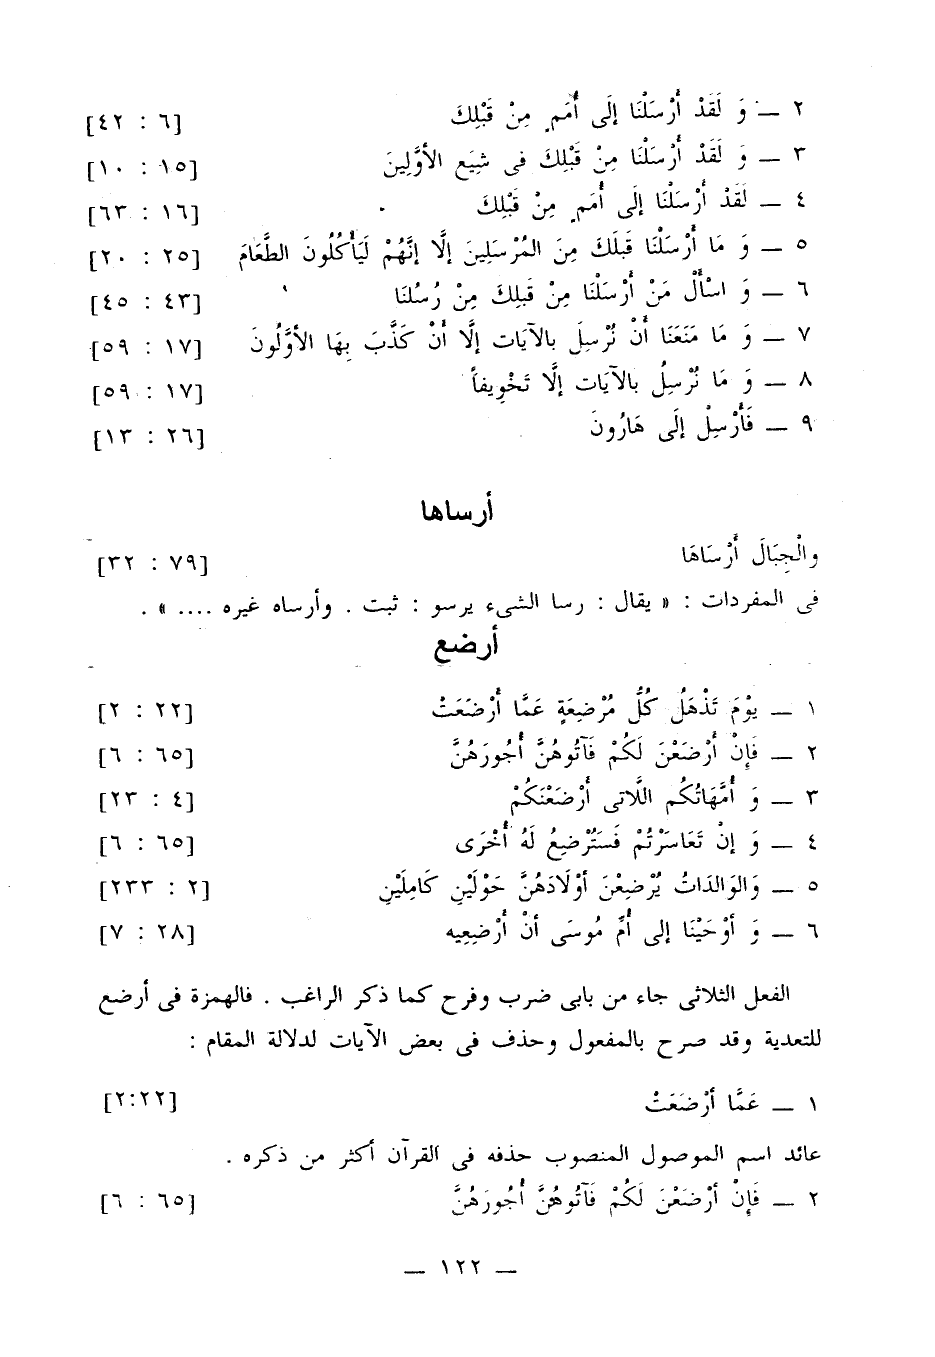 ٢ ــ وَ لَقَدْ أَرْسَلْنَا إِلَى أُمَمٍ مِنْ قَبْلِكَ [٦ : ٤٢]
٣ ــ وَ لَقَدْ أَرْسَلْنَا مِنْ قَبْلِكَ فى شِيَعِ الأوَّلِينَ [١٥ : ١٠]
٤ ــ لَقَدْ أَرْسَلْنَا إِلَى أُمَمٍ مِنْ قَبْلِكَ [١٦ : ٦٣]
٥ ــ وَ مَا أَرْسَلْنَا قَبلَكَ مِنَ المُرْسَلِينَ إلَّا إنَّهُمْ لَيَأْكُلُونَ الطَّعَامَ [٢٥ : ٢٠]
٦ ــ وَ اسْأَلْ مَنْ أَرْسَلْنَا مِنْ قَبلِكَ مِنْ رُسُلنَا [٤٣ : ٤٥]
٧ ــ وَ مَا مَنَعَنَا أَنْ نُرْسِلَ بالآيَات إلَّا أَنْ كَذَّبَ بِهَا الأوَّلُونَ [١٧ : ٥٩]
٨ ــ وَ مَا نُرْسِلُ بالآيَات إلَّا تَخْوِيفاً [١٧ : ٥٩]
٩ ــ فَأَرْسِلْ إلَى هَارُونَ [٢٦ : ١٣]
أرساها
والْجِبَالَ أَرْسَاهَا [٧٩ : ٣٢]
فى المفردات : « يقال : رسا الشىء يرسو : ثبت . وأرساه غيره .... » .
أرضع
١ ــ يوْمَ تَذْهَلُ كُلُّ مُرْضِعَةٍ عَمَّا أَرْضَعَتْ [٢٢ : ٢]
٢ ــ فَإِنْ أَرْضَعْنَ لَكُمْ فَآتُوهُنَّ أُجُورَهُنَّ [٦٥ : ٦]
٣ ــ وَ أُمَّهَاتُكُم اللَّاتى أَرْضَعْنَكُمْ [٤ : ٢٣]
٤ ــ وَ إنْ تَعَاسَرْتُمْ فَسَتُرْضِعُ لَهُ أُخْرَى [٦٥ : ٦]
٥ ــ وَالوَالدَاتُ يُرْضِعْنَ أوْلَادَهُنَّ حَوْلَيْنِ كَامِلَيْنِ [٢ : ٢٣٣]
٦ ــ وَ أوْحَيْنَا إلى أُمِّ مُوسَى أنْ أَرْضِعِيه [٢٨ : ٧]
الفعل الثلاثى جاء من بابى ضرب وفرح كما ذكر الراغب . فالهمزة فى أرضع
للتعدية وقد صرح بالمفعول وحذف فى بعض الآيات لدلالة المقام :
١ ــ عَمَّا أرْضَعَتْ [٢:٢٢]
عائد اسم الموصول المنصوب حذفه فى القرآن أكثر من ذكره .
٢ ــ فَإِنْ أرْضَعْنَ لَكُمْ فَآتُوهُنَّ أُجُورَهُنَّ [٦٥ : ٦]
ــ ١٢٢ ــ